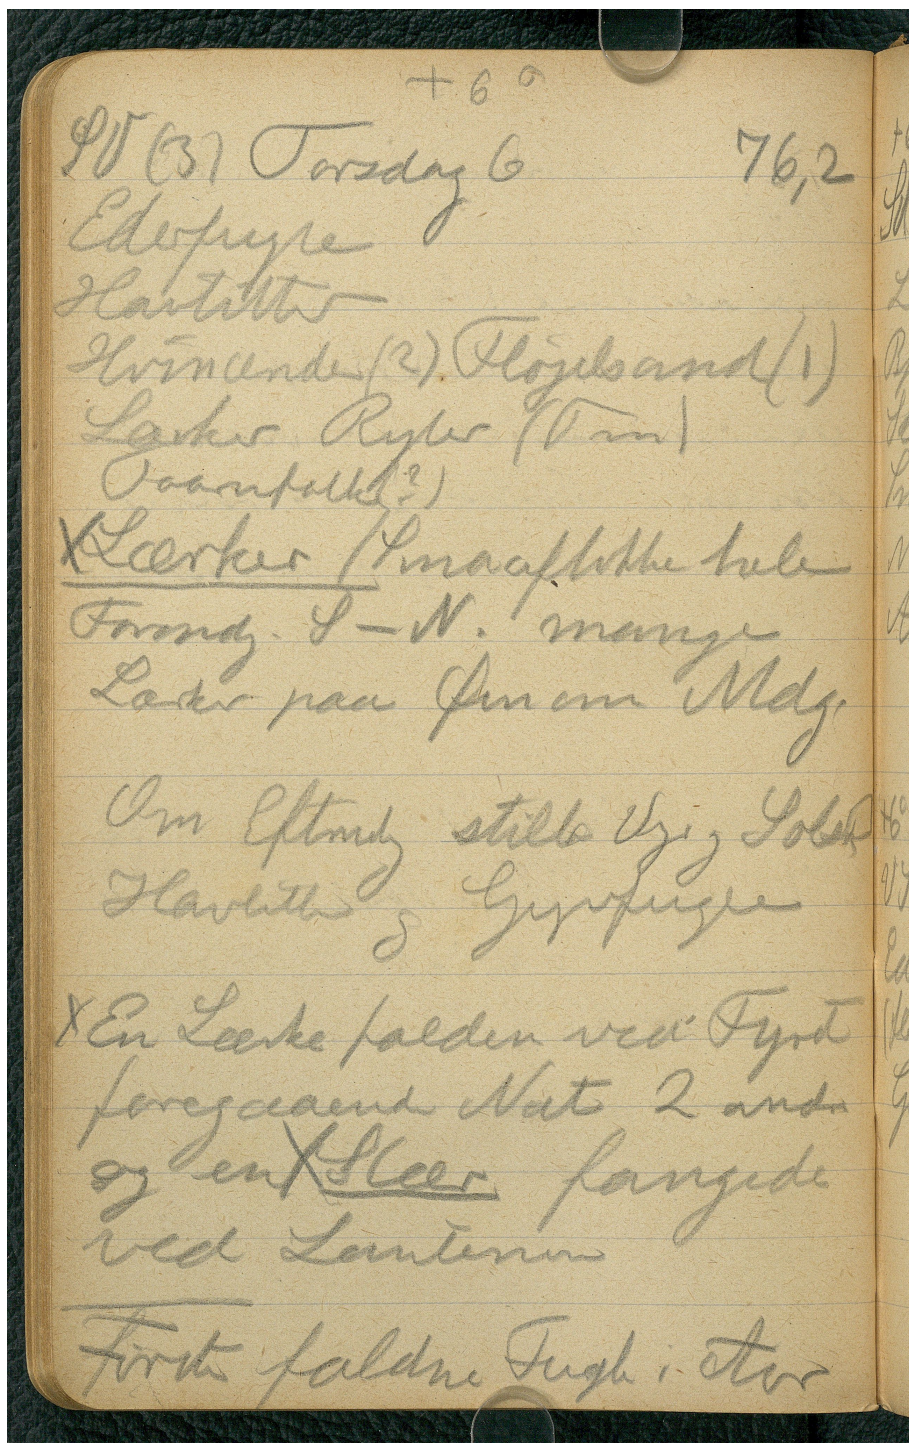 + 6°
SV (3) Torsdag 6 76,2
Ederfugle
Havlitter
Hvinænder (2) Fløjelsand (1)
Lærker Ryler (Tm)
Taarnfalk (?)
X Lærker / Smaaflokke hele
Formdg. S – N. mange
Lærker paa Øen om Mdg.
Om Eftmdg stille Vejr og Solsk
Havlitter og Gejrfugle
X En Lærke falden ved Fyret
foregaaende Nat 2 andre
og en X Stær fangede
ved Lanternen
Første faldne Fugle i Aar